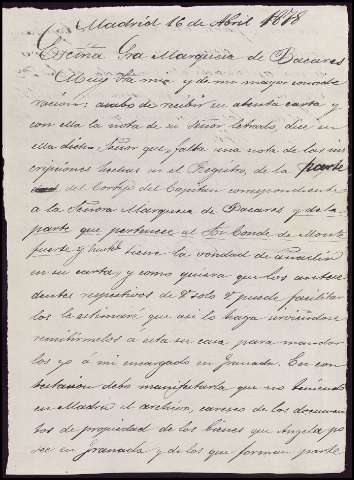 Madrid 16 de Abril 1878
Excma Sra Marquesa de Pacares
Muy Sra mia y de mi mayor conside
racion: acabo de recibir su atenta carta y
con ella la nota de su Señor letrado, dice en
ella dicho Señor que, falta una nota de las ins
cripciones hechas en el Registro, de la parte
del Cortijo del Capitan correspondiente
a la Señora Marquesa de Pacares y de la
parte que pertenece al Sr Conde de Monte
fuerte y tiene la vondad de
en su carta, y como quiera que los antece
dentes respectivos de Vd solo Vd puede facilitar
los le estimare que asi lo haga sirviendose
remitirmelos a esta su casa para mandar
los yo á mi encargado en Granada. En con
testacion debo manifestarla que no teniendo
en Madrid el archivo, caresco de los documen
tos de propiedad de los bienes que Angela po
see en Granada y de los que forman parte